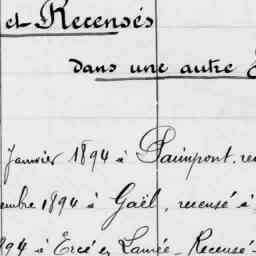 et Recensés
dans une autre
Janvier 1894 à Paimpont, rec
embre 1894 à Gaël, recensé à
894 à Ercé en Lamée - Recensé